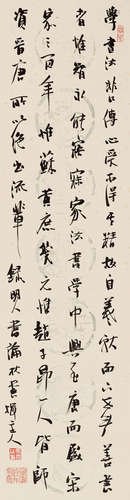 學書法非口傳心受不得其精故自羲獻而下世無善書
者惟智永能寤寐家法書學中興至唐而盛宋
家三百年惟蘇黃庶幾元惟趙子昂一人皆師
資晉唐所以絶出流輩 錄明人書論 主人